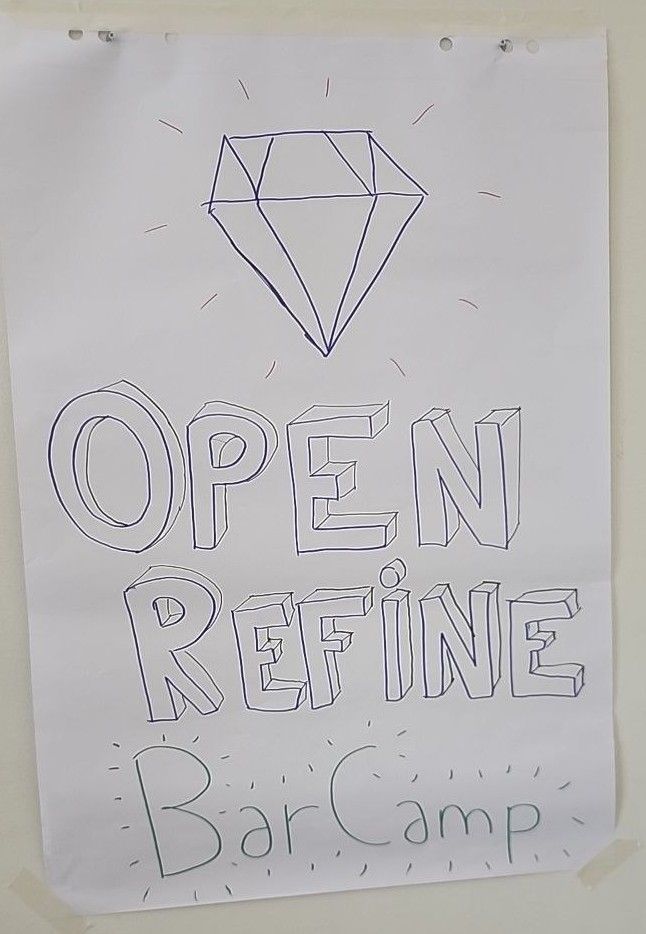 OPEN
REFiNE
BarCamp